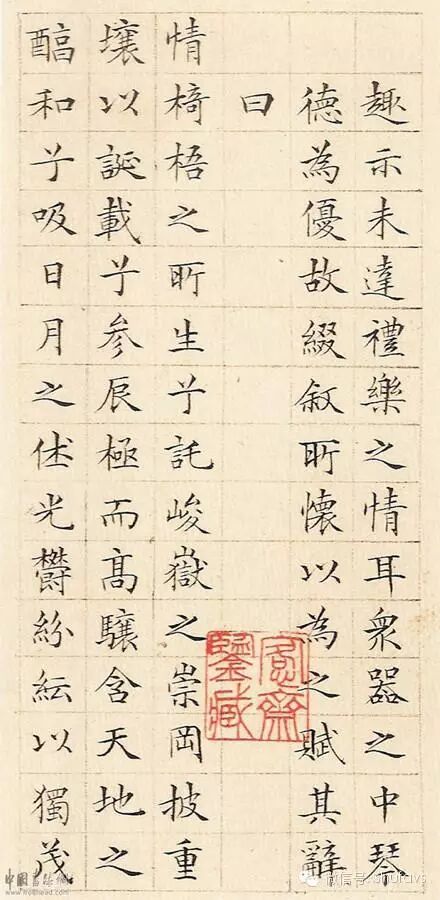 趣示未達禮樂之情耳衆器之中琴
德為優故綴敘所懷以為之賦其辭
曰
情椅梧之所生兮託峻嶽之崇岡披重
壤以誕載兮參辰極而髙驤含天地之
醕和兮吸日月之休光鬱紛紜以獨茂
齋
鑒藏
中國書法網
微信号: shufavs